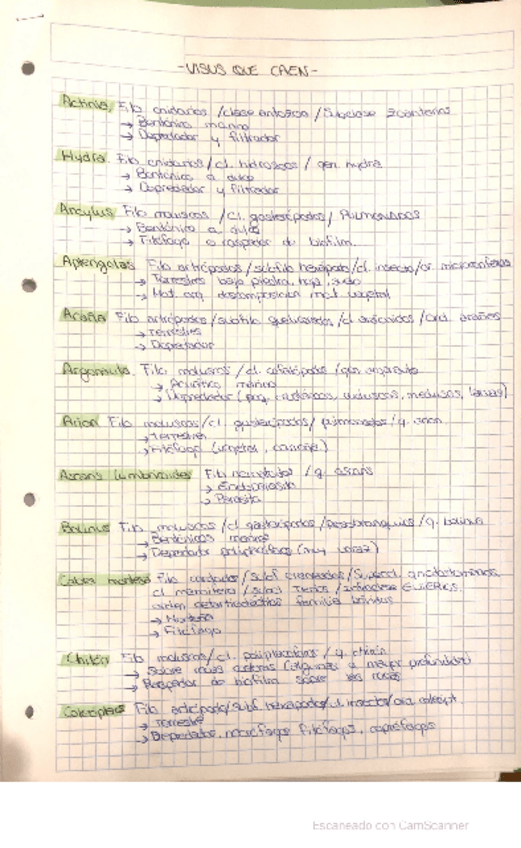 -VISUS QUE CAEN-
Actinia, Filo cnidarios / clase antozoa / Subclase
→ Bentónico marino
→ Depredador y filtrador
Hydra Filo cnidarios / cl. hidrozoos / gen. hydra
→ Bentónico a. dulce
→ Depredador y filtrador
Ancylus Filo moluscos / cl. gasterópodos / PULMONADOS
→ Bentónico a. dulce
→ Filófago o raspador de biofilm.
Filo artrópodos / subfilo hexápoda / cl. insecta / or.
→ Terrestres bajo piedra, hoja,
→ Mat. org. descomposición mat. vegetal
Araña Filo artrópodos / subfilo quelicerados / cl. arácnidos / ord.
→ Terrestres
→ Depredador
Argonauta. Filo moluscos / cl. cefalópodos / gen. argonauta
→ marino
→ Depredador (peq. crustáceos, moluscos, medusas, larvas)
Arion Filo moluscos / cl. gasterópodos / pulmonados / g. arion.
→ Terrestre
→ Fitófago
Ascaris lumbricoides Filo nematodos / g. ascaris
→ Endoparásito
→ Parásito
Bolinus Filo moluscos / cl. gasterópodos / / g. bolinus
→ Bentónicos marino
→ Depredador (muy voraz)
Cabra montesa Filo cordados / subf. craneados /
cl. mamíferos / subcl. Terios / infraclase EUTERIOS
orden familia bóvidos
→
→ Fitófago
Chitón Filo moluscos / cl. poliplacóforos / g. chiton
→ Sobre rocas costeras (algunos a mayor profundidad)
→ Raspador de biofilm sobre las rocas
Coleóptero Filo artrópodo / subf. hexápodo / cl. insectos / ord. coleopt.
→ Terrestre
→ Depredador, fitófagos, coprófagos
Escaneado con CamScanner